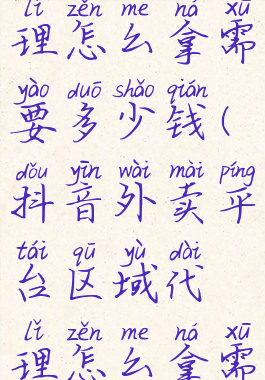 lǐ zěn me ná xū
理怎么拿需
yào duō shǎo qián
要多少钱(
dǒu yīn wài mài píng
抖音外卖平
tái qū yù dài
台区域代
lǐ zěn me ná xū
理怎么拿需